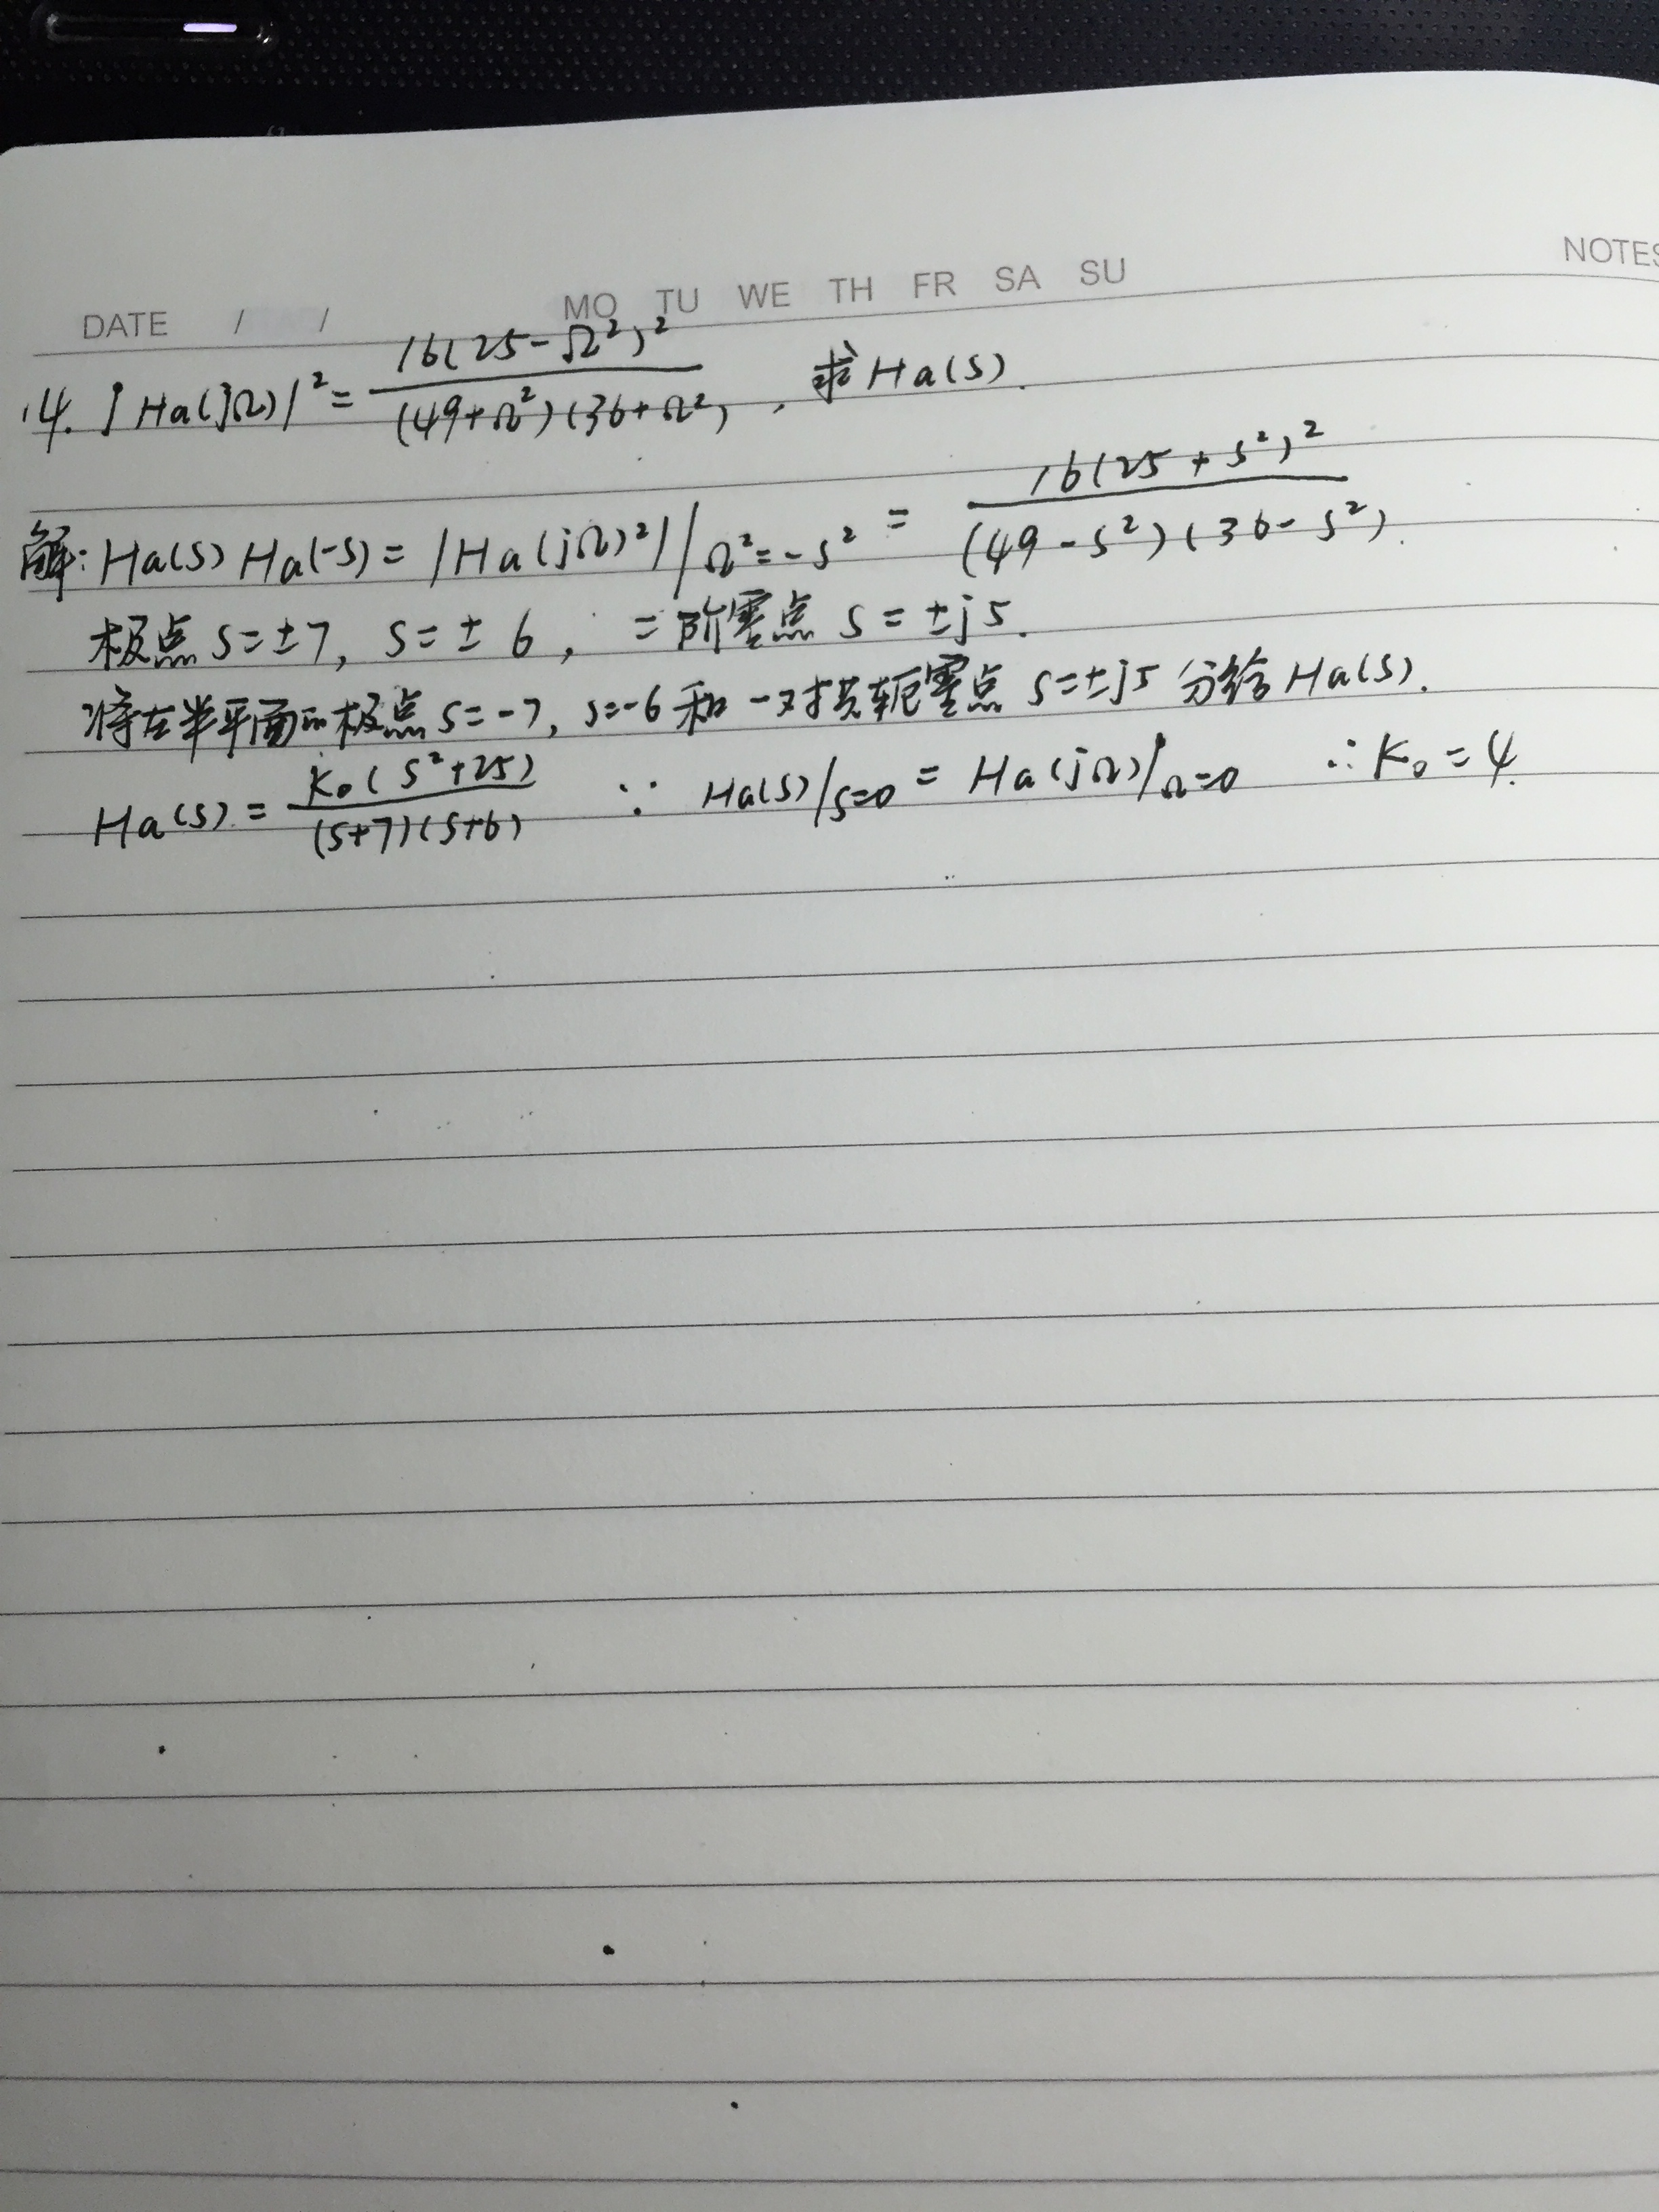 NOTES
DATE / / MO TU WE TH FR SA SU
14. |Ha(jΩ)|² = 16(25-Ω²)² / (49+Ω²)(36+Ω²), 求Ha(s).
解: Ha(s) Ha(-s) = |Ha(jΩ)²| |Ω²=-s² = 16(25+s²)² / (49-s²)(36-s²).
极点 s=±7, s=±6, 二阶零点 s=±j5.
将左半平面的极点 s=-7, s=-6 和一对共轭零点 s=±j5 分给 Ha(s).
Ha(s) = K₀(s²+25) / (s+7)(s+6) ∵ Ha(s)|s=0 = Ha(jΩ)|Ω=0 ∴ K₀=4.